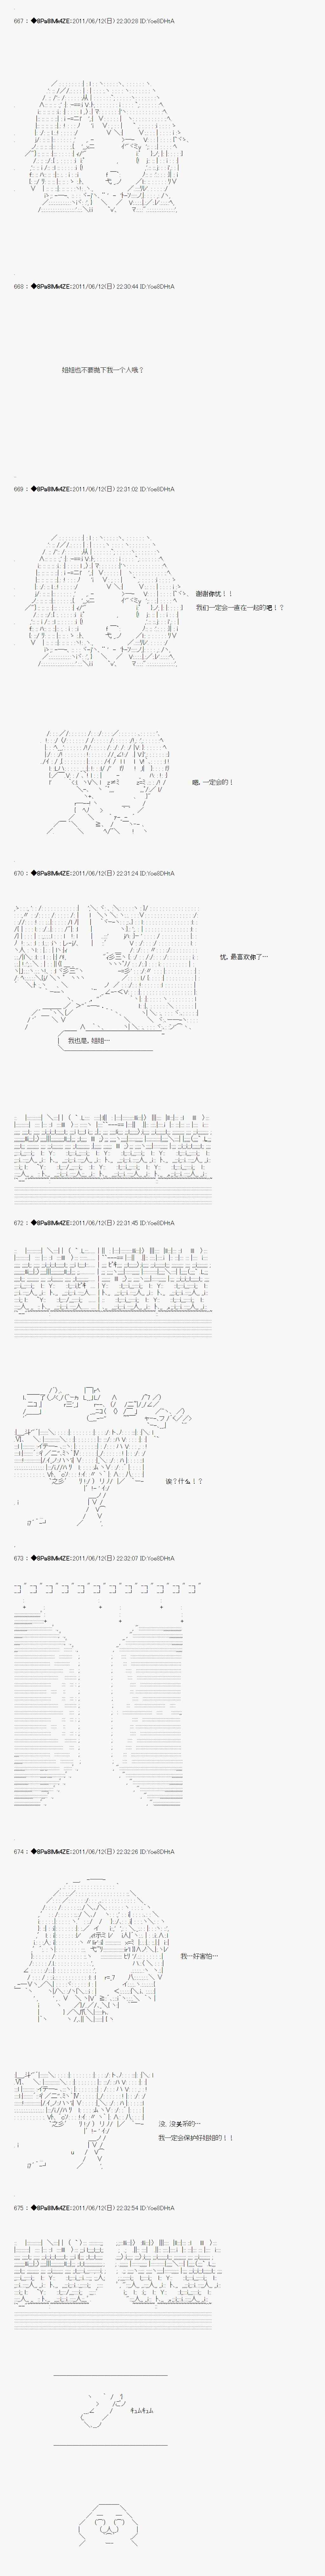 667 : ◆8Pa8IMk4ZE:2011/06/12(日) 22:30:28 ID:Yoe8DHtA
668 : ◆8Pa8IMk4ZE:2011/06/12(日) 22:30:44 ID:Yoe8DHtA
姐姐也不要抛下我一个人哦？
669 : ◆8Pa8IMk4ZE:2011/06/12(日) 22:31:02 ID:Yoe8DHtA
谢谢你忧！！
我们一定会一直在一起的吧！？
嗯，一定会的！
670 : ◆8Pa8IMk4ZE:2011/06/12(日) 22:31:24 ID:Yoe8DHtA
忧，最喜欢你了…
我也是，姐姐…
672 : ◆8Pa8IMk4ZE:2011/06/12(日) 22:31:45 ID:Yoe8DHtA
诶？什么！？
673 : ◆8Pa8IMk4ZE:2011/06/12(日) 22:32:07 ID:Yoe8DHtA
674 : ◆8Pa8IMk4ZE:2011/06/12(日) 22:32:26 ID:Yoe8DHtA
我…好害怕…
没，没关系的…
我一定会保护好姐姐的！！
675 : ◆8Pa8IMk4ZE:2011/06/12(日) 22:32:54 ID:Yoe8DHtA
ｷｭﾑｷｭﾑ